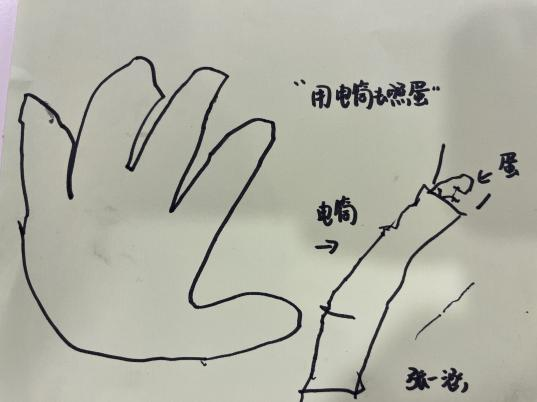 "用电筒去照蛋"
蛋
电筒
张一